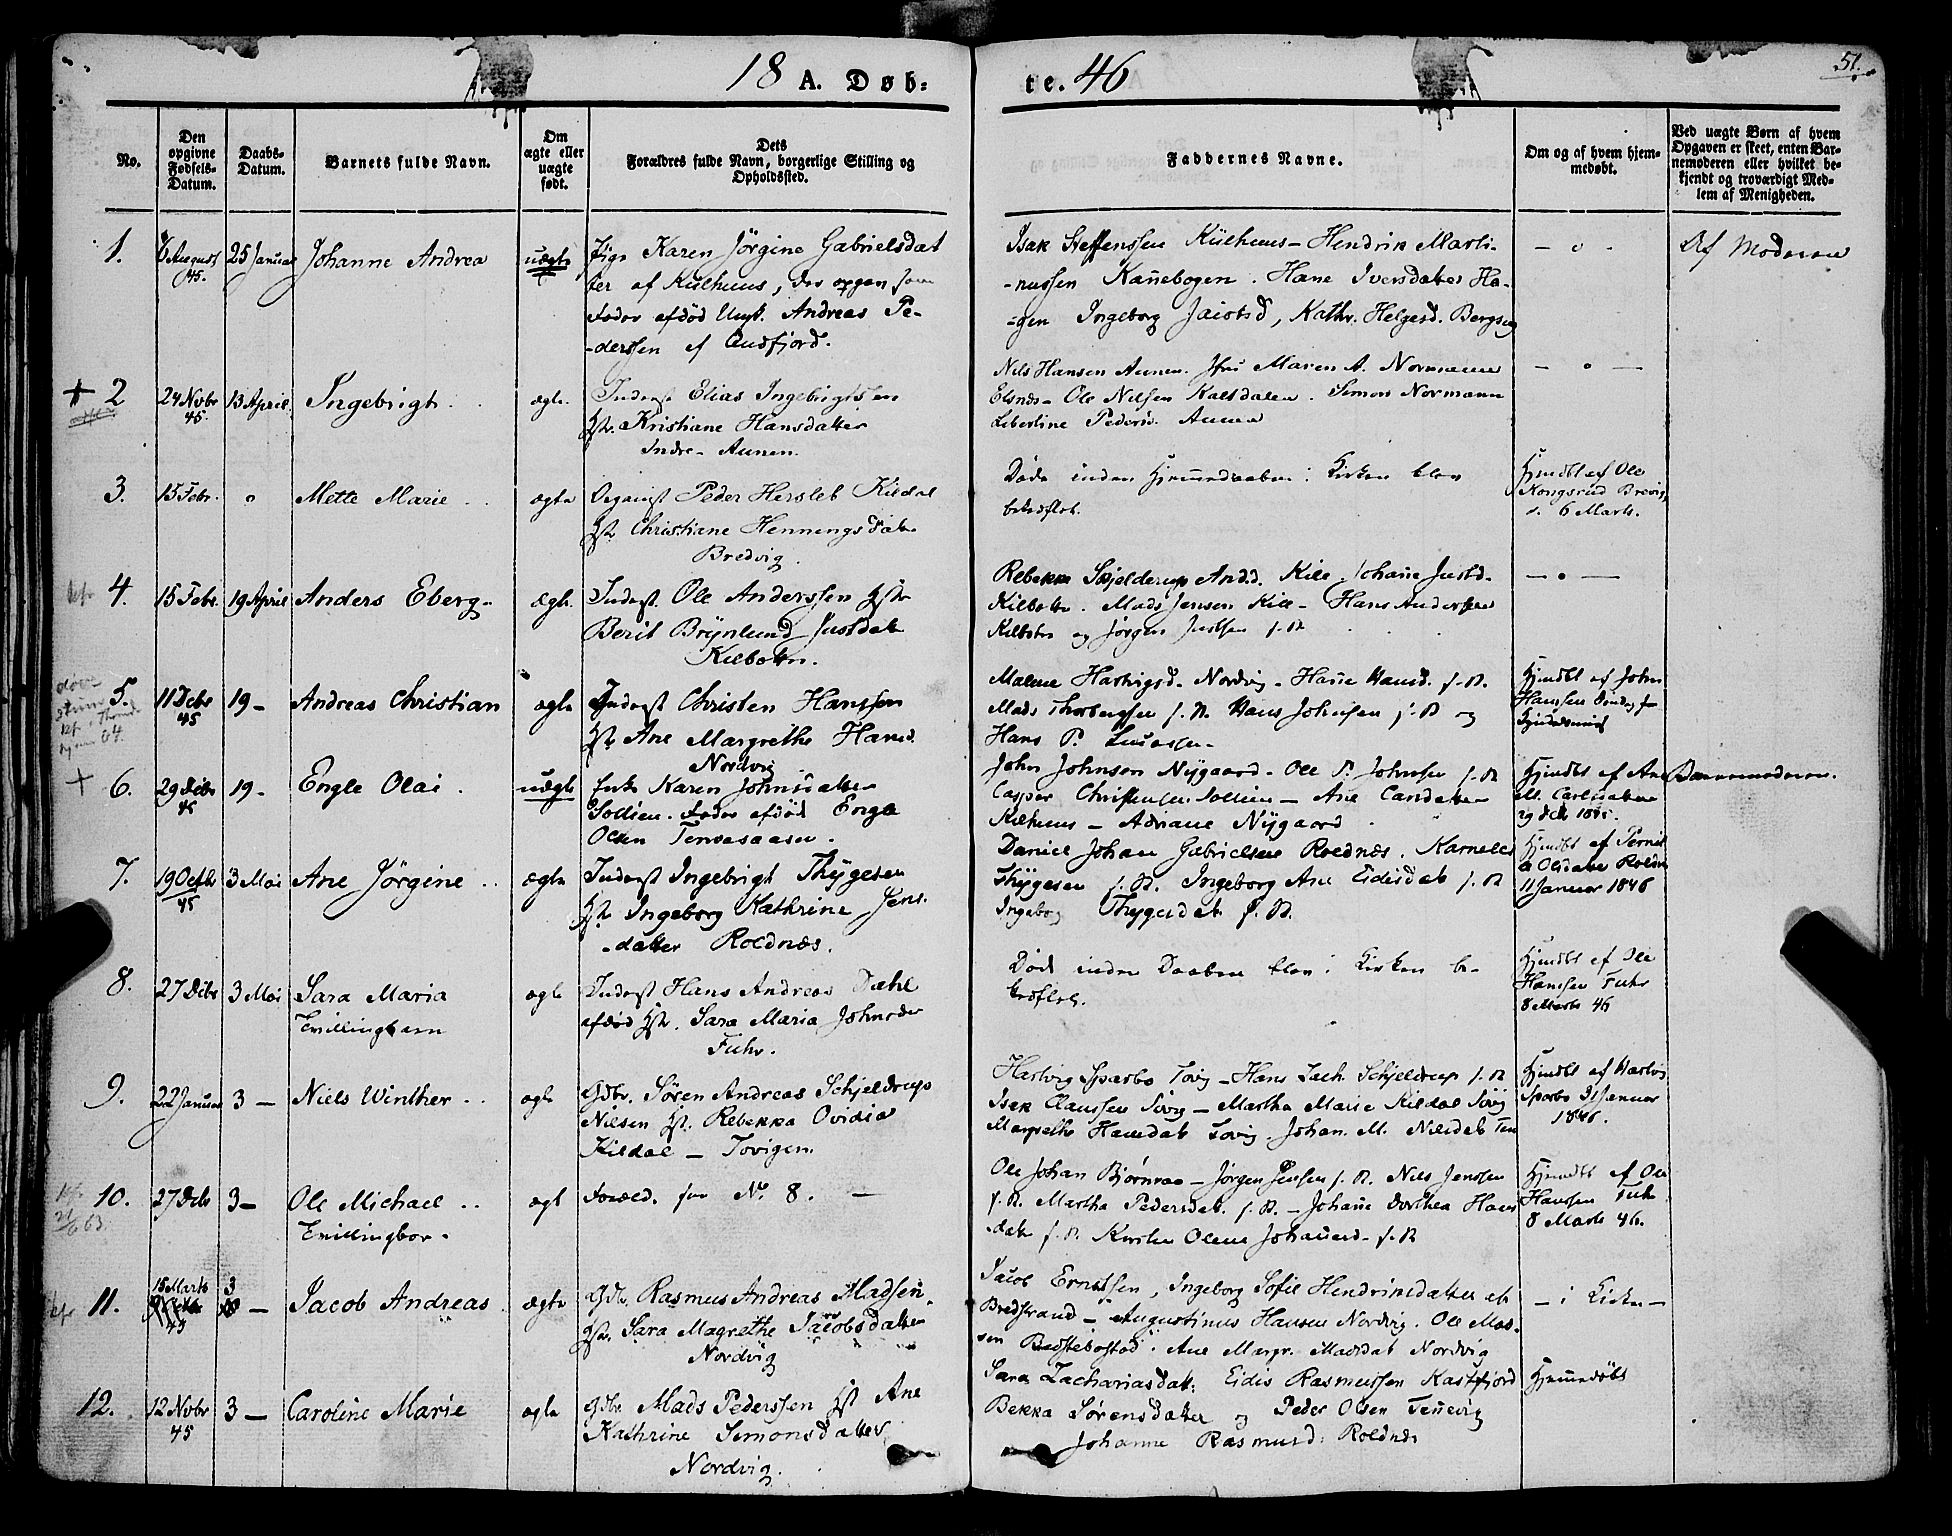 18 A. Døb-
te. 46
51.
No.
Den opgivne Fødsels-Datum.
Daabs-Datum.
Barnets fulde Navn.
Om ægte eller uægte født.
Dets
Forældres fulde Navn, borgerlige Stilling og
Opholdssted.
Faddernes Navne.
Om og af hvem hjem-
medøbt.
Ved uægte Børn af hvem
Opgaven er skeet, enten Bar-
nemoderen eller hvilket be-
kjendt og troværdigt Med-
lem af Menigheden.
1.
August 45.
25 Januar
Johanne Andrea
uægte
Pige Karen Jörgine Gabrielsdat
ter af Külhuus, der opgav som
Fader afdød Ungk. Andreas Pe-
-derssen af Qudfjord.
Isak Steffenssen Külhuus - Hendrik Marti-
-nussen Kanebogen. Hane Iversdatter Ha-
-gen Ingeborg Jacobsd, Kathr. Helgesd. Bergseng
- o -
Af Moderen
+ 2
24 Novbr 45
13 April
Ingebrigt
ægte.
Inderst Elias Ingebrigtsen
Hst. Kristiane Hansdatter
Indre- Aunen.
Nils Hansen Aunen. Jfru Maren A. Normann
Elsnes- Ole Nilsen Kalsdalen. Simon Normann
Libertine Pedersd. Aunen
- o -
3.
15 Febr.
o
Mette Marie
ægte
Organist Peder Hersleb Kildal
Hst Christiane Henningsdatter
Bredvig
Døde inden Hjemmedaaben i Kirken blev
bekræftet.
Hjemdbt af Ole
Kongsrud Brevig
d. 6 Marts.
4.
15 Febr.
19 April
Anders Eberg-
ægte.
Inderst. Ole Anderssen Hstr
Berit Brynlund Justdatr
Kilbotn.
Rebekka Skjelderup And.d. Kile. Johane Justd.
Kilbotn. Mads Jensen Kile - Hans Anderssen
Kilbotn og Jörgen Justsen s. St.
- o -
5.
11 Decbr 45
19 -
Andreas Christian
ægte
Inderst Christen Hanssen
Hst. Ane Margrethe Hansd.
Nordvig
Malene Hartvigsd. Nordvig - Hane Hansd. s. St.
Mads Thorbergsen s. St. Hans Johnsen s. St og
Hans P. Lucassen-
Hjemdbt af John
Hanssen
+ 6.
29 Decbr 45
19 -
Engle Olai
uægte
Enke Karen Johnsdatter
Sollien. Fader afdød Engel
Olsen Tennesaasen.
John Johnson Nygaard - Ole P. Johnsen s. St
Casper Christensen Sollien - Ane Carlsdatter
Kilhuus - Adriane Nygaard
Hjemdbt af Ane
M. Carlsdatter
29 Decbr 1845.
Barnemoderen.
7.
19 Octbr 45
3 Mai
Ane Jørgine
ægte
Inderst Ingebrigt Thygesen
Hst. Ingeborg Kathrine Jens-
-datter Roldnæs.
Daniel Johan Gabrielsen Roldnæs. Karneles
Thygesen s. St. Ingeborg Ane Eidisdat s. St
Ingeborg Thygesdat. s. St.
Hjemdbt af Pernil
a Olsdatter Roldnæs
11 Januar 1846
8.
27 Decbr
3 Mai
Sara Maria
Tvillingbarn
ægte
Inderst Hans Andreas Dahl
afdød Hst. Sara Maria Johnsdr
Fuhr.
Død inden Daaben blev i Kirken be-
kræftet.
Hjemdbt af Ole
Hanssen Fuhr
8 Marts 46
9.
22 Januar
3 -
Niels Winther
ægte
Gdbr. Sören Andreas Schjeldrup
Nilsen Hst. Rebekka Ovidia
Kildal - Tovigen.
Hartvig Sparbo Tovig - Hans Zach. Schjeldrup s. St
Isak Clausen Tovig - Martha Marie Kildal Tovig
Margrethe Hansdat. Tovig. Johan. M. Nilsdat
Hjemdbt af Hartvig
Sparbo 31 Januar
1846.
10.
27 Decbr
3 -
Ole Michael
Tvillingbar-
ægt
Foræld. see No. 8. -
Ole Johan Bjørnraa - Jørgen Jensen s. St. Nils Jenssen
s. St. Martha Pedersdat. s. St. - Johane Dorthea Hans
-datr s. St. Kirsten Olene Johannesd. s. St
Hjemdbt af Ole
Hanssen Fuhr
8 Marts 46.
11.
15 Marts
45
3
Jacob Andreas
ægte
Gdbr. Rasmus Andreas Madsen.
Hst. Sara Magrethe Jacobsdatter
Nordvig
Jacob Erntsen, Ingeborg Sofie Hendriksdatter af
Bredstrand - Augustinus Hansen Nordvig. Ole Mas-
sen Bedstebostad. Ane Margr. Madsdat Nordvig
- i Kirken -
12.
12 Novbr 45
3 -
Caroline Marie
ægte
Gdbr. Mads Pederssen Hst Ane
Kathrine Simonsdatter
Nordvig.
Sara Zachariasdatt. Eidis Rasmussen Kastfjord
Bekka Sørensdatter og Peder Olsen Tennevig
Johanne Rasmusd. Roldnæs
Hjemmedøbt